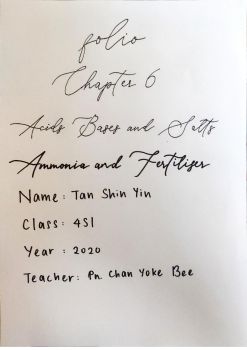 folio
Chapter 6
Acids Bases and Salts
Ammonia and Fertiliser
Name : Tan Shin Yin
Class : 4S1
Year : 2020
Teacher : Pn. Chan Yoke Bee